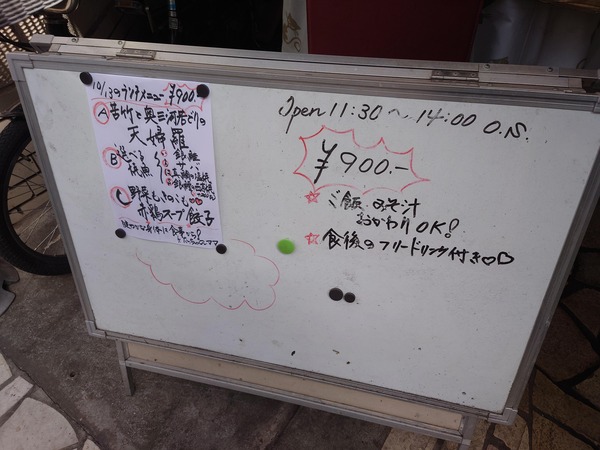 10/13のランチメニュー ¥900.-
Ⓐ 若竹と奥三河若どりの
天婦羅
Ⓑ 選べる
焼魚
野菜ときのこも♡♡
赤鶏スープ餃子
Open 11:30 〜 14:00 O.S.
¥900.-
☆ ご飯、みそ汁
おかわりOK!
☆ 食後のフリードリンク付き♡♡